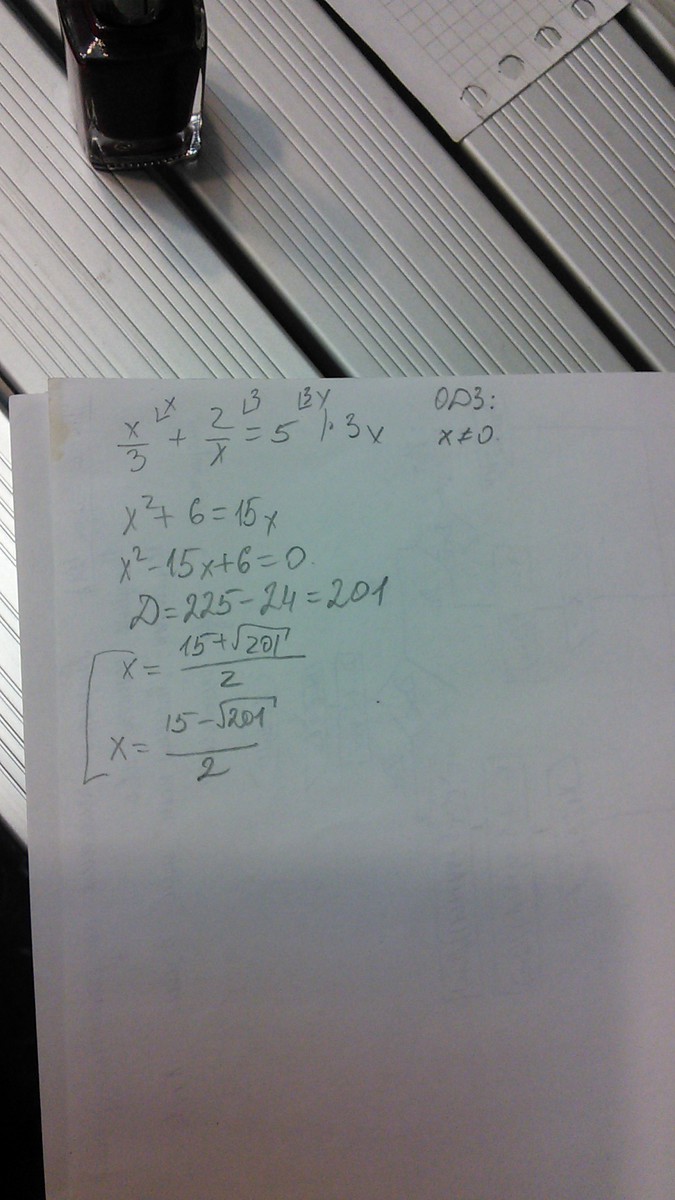 x/3 ⌊x + 2/x ⌊3 = 5 ⌊3x |·3x ОДЗ:
x≠0.
x²+6=15x
x²-15x+6=0.
D=225-24=201
[x= (15+√201)/2
x= (15-√201)/2